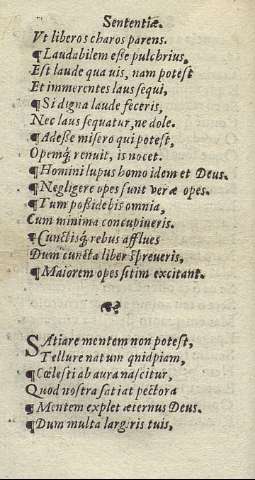 Sententiæ.
Vt liberos charos parens.
¶ Laudabilem eſſe pulchrius,
Eſt laude qua uis, nam poteſt
Et immerentes laus ſequi,
¶ Si digna laude feceris,
Nec laus ſequatur, ne dole.
¶ Adeſſe miſero qui poteſt,
Opemq́; renuit, is nocet.
¶ Homini lupus homo idem et Deus.
¶ Negligere opes ſunt veræ opes.
¶ Tum poßidebis omnia,
Cum minima concupiueris.
¶ Cunctiſq́; rebus afflues
Dum cuncta liber ſpreueris,
¶ Maiorem opes ſitim excitant.
SAtiare mentem non poteſt,
Tellure natum quidpiam,
¶ Cœleſti ab aura naſcitur,
Quod noſtra ſatiat pectora
¶ Mentem explet æternus Deus.
¶ Dum multa largiris tuis,